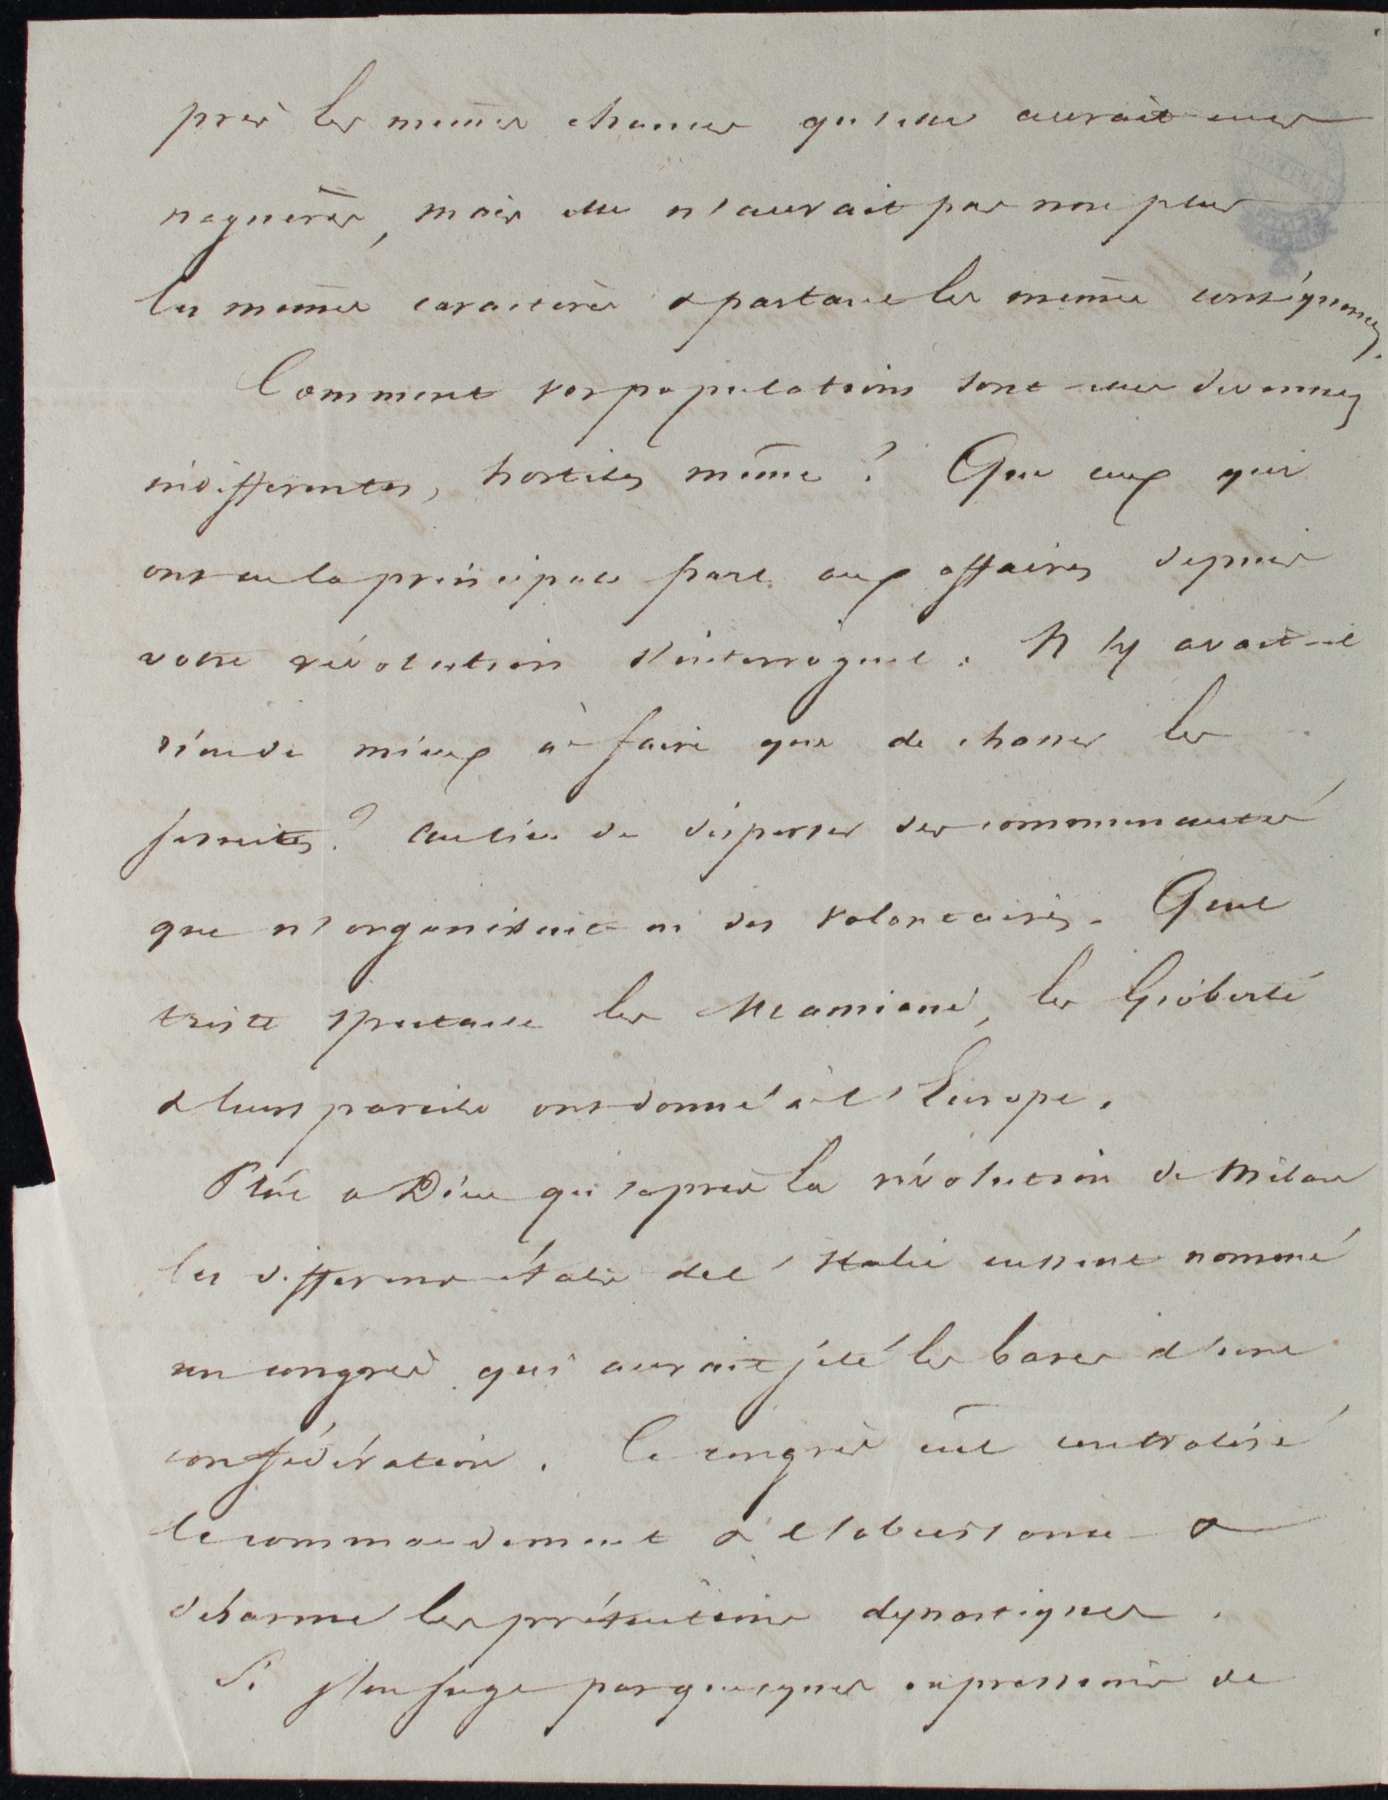 près les mêmes chances qu'elle aurait eues
naguères, mais elle n'aurait pas non plus
les mêmes caractères & partant les mêmes conséquences.
Comment vos populations sont-elles devenues
indifferentes, hostiles même ? Que ceux qui
ont eu la principale part aux affaires depuis
votre révolution s'interrogent. N'y avait-il
rien de mieux à faire que de chasser les
jesuites ? Au lieu de disperser des communautés
que n'organisait-on des volontaires. Quel
triste spectacle les Mamiani, les Gioberti
& leurs pareils ont donné à l'Europe.
Plût a Dieu qu'après la révolution de Milan
les differens états de l'Italie eussent nommé
un congrès qui aurait jeté les bases d'une
confédération. Ce congrès eût centralisé
le commandement & l'obéissance &
désarmé les prétentions dynastiques.
Si j'en juge par quelques expressions de